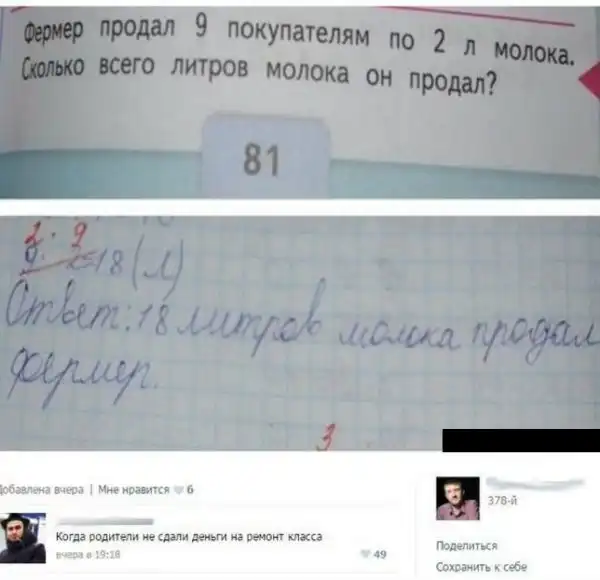 Фермер продал 9 покупателям по 2 л молока.
Сколько всего литров молока он продал?
81
2 · 9
9 · 2=18 (л)
Ответ: 18 литров молока продал
фермер.
3
Добавлена вчера | Мне нравится 6
Когда родители не сдали деньги на ремонт класса
вчера в 19:18 49
378-й
Поделиться
Сохранить к себе